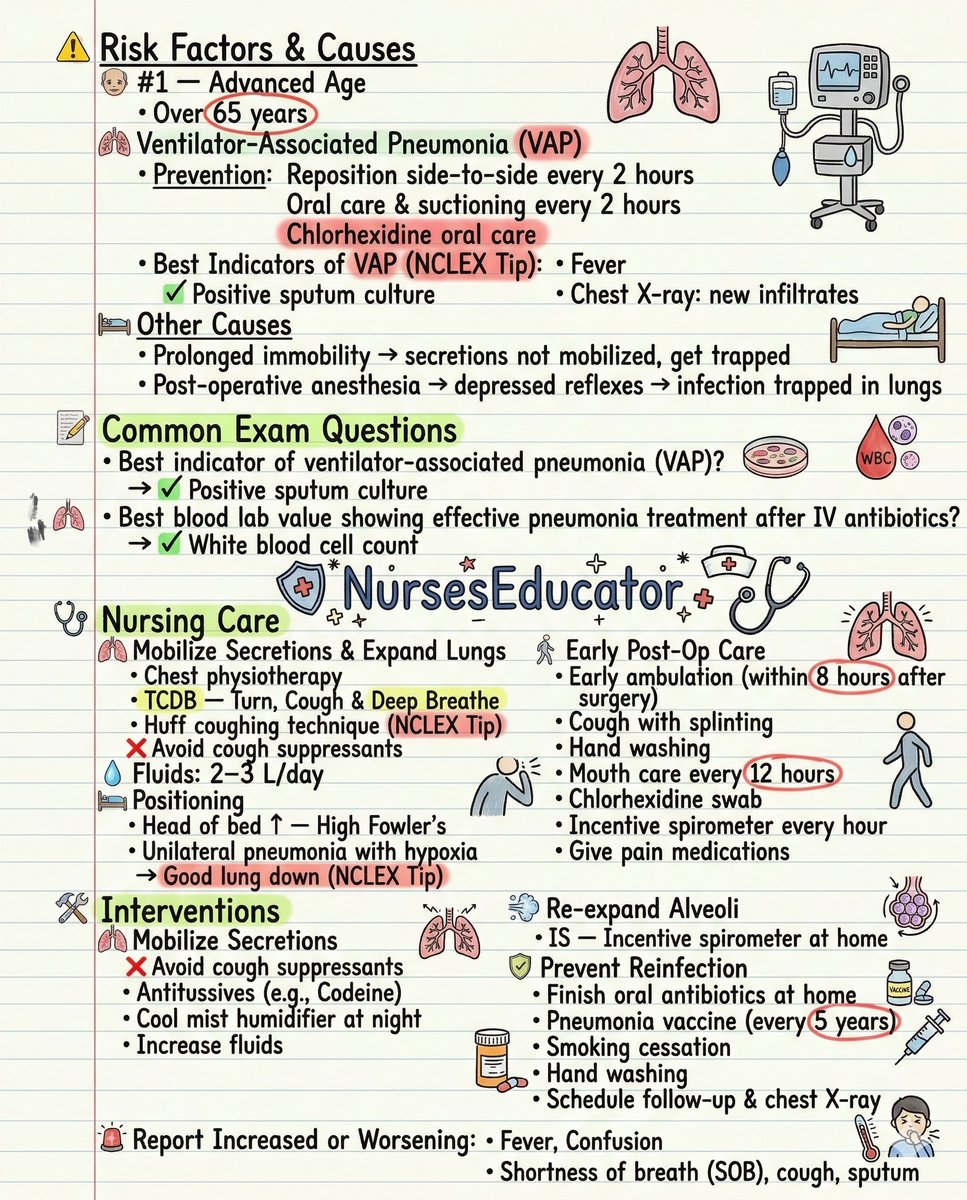 ⚠️ Risk Factors & Causes
#1 — Advanced Age
• Over 65 years
Ventilator-Associated Pneumonia (VAP)
• Prevention: Reposition side-to-side every 2 hours
Oral care & suctioning every 2 hours
Chlorhexidine oral care
• Best Indicators of VAP (NCLEX Tip): • Fever
✓ Positive sputum culture • Chest X-ray: new infiltrates
Other Causes
• Prolonged immobility → secretions not mobilized, get trapped
• Post-operative anesthesia → depressed reflexes → infection trapped in lungs
Common Exam Questions
• Best indicator of ventilator-associated pneumonia (VAP)?
→ ✓ Positive sputum culture
WBC
• Best blood lab value showing effective pneumonia treatment after IV antibiotics?
→ ✓ White blood cell count
NursesEducator
Nursing Care
Mobilize Secretions & Expand Lungs
• Chest physiotherapy
• TCDB — Turn, Cough & Deep Breathe
• Huff coughing technique (NCLEX Tip)
❌ Avoid cough suppressants
Fluids: 2–3 L/day
Positioning
• Head of bed ↑ — High Fowler's
• Unilateral pneumonia with hypoxia
→ Good lung down (NCLEX Tip)
Early Post-Op Care
• Early ambulation (within 8 hours after
surgery)
• Cough with splinting
• Hand washing
• Mouth care every 12 hours
• Chlorhexidine swab
• Incentive spirometer every hour
• Give pain medications
Interventions
Mobilize Secretions
❌ Avoid cough suppressants
• Antitussives (e.g., Codeine)
• Cool mist humidifier at night
• Increase fluids
Re-expand Alveoli
• IS — Incentive spirometer at home
Prevent Reinfection
• Finish oral antibiotics at home
VACCINE
• Pneumonia vaccine (every 5 years)
• Smoking cessation
• Hand washing
• Schedule follow-up & chest X-ray
Report Increased or Worsening: • Fever, Confusion
• Shortness of breath (SOB), cough, sputum